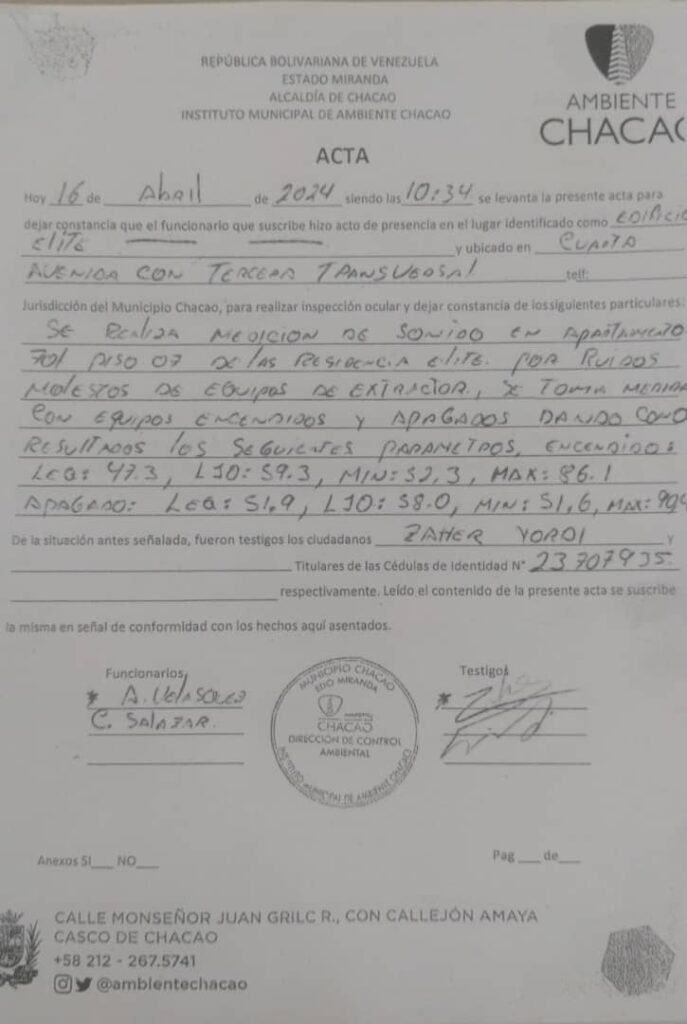 REPÚBLICA BOLIVARIANA DE VENEZUELA
ESTADO MIRANDA
ALCALDÍA DE CHACAO
INSTITUTO MUNICIPAL DE AMBIENTE CHACAO
AMBIENTE
CHACAO
ACTA
Hoy 16 de Abril de 2024 siendo las 10:34 se levanta la presente acta para
dejar constancia que el funcionario que suscribe hizo acto de presencia en el lugar identificado como EDIFICIO
ELITE y ubicado en CUARTA
AVENIDA CON TERCERA TRANSVERSAL telf:
Jurisdicción del Municipio Chacao, para realizar inspección ocular y dejar constancia de los siguientes particulares:
SE REALIZA MEDICION DE SONIDO EN APARTAMENTO
701 PISO 07 DE LAS RESIDENCIA ELITE. POR RUIDOS
MOLESTOS DE EQUIPOS DE EXTRACTOR, SE TOMA MEDIDA
CON EQUIPOS ENCENDIDOS Y APAGADOS DANDO COMO
RESULTADOS LOS SEGUIENTES PARAMETROS, ENCENDIDOS
LEQ: 47.3, L10: 59.3, MIN: 52,3, MAX: 86.1
APAGADO: LEQ: 51,9, L10: 58.0, MIN: 51,6, MAX:
De la situación antes señalada, fueron testigos los ciudadanos ZAHER YORDI y
Titulares de las Cédulas de Identidad N° 23707935
respectivamente. Leído el contenido de la presente acta se suscribe
la misma en señal de conformidad con los hechos aquí asentados.
Funcionarios
* A. VELASQUEZ
C. SALAZAR.
MUNICIPIO CHACAO
EDO MIRANDA
CHACAO
DIRECCIÓN DE CONTROL
AMBIENTAL
INSTITUTO MUNICIPAL DE AMBIENTE CHACAO
Testigos
*
Anexos SI___ NO___
Pag ___ de___
CALLE MONSEÑOR JUAN GRILC R., CON CALLEJÓN AMAYA
CASCO DE CHACAO
+58 212 - 267.5741
@ambientechacao